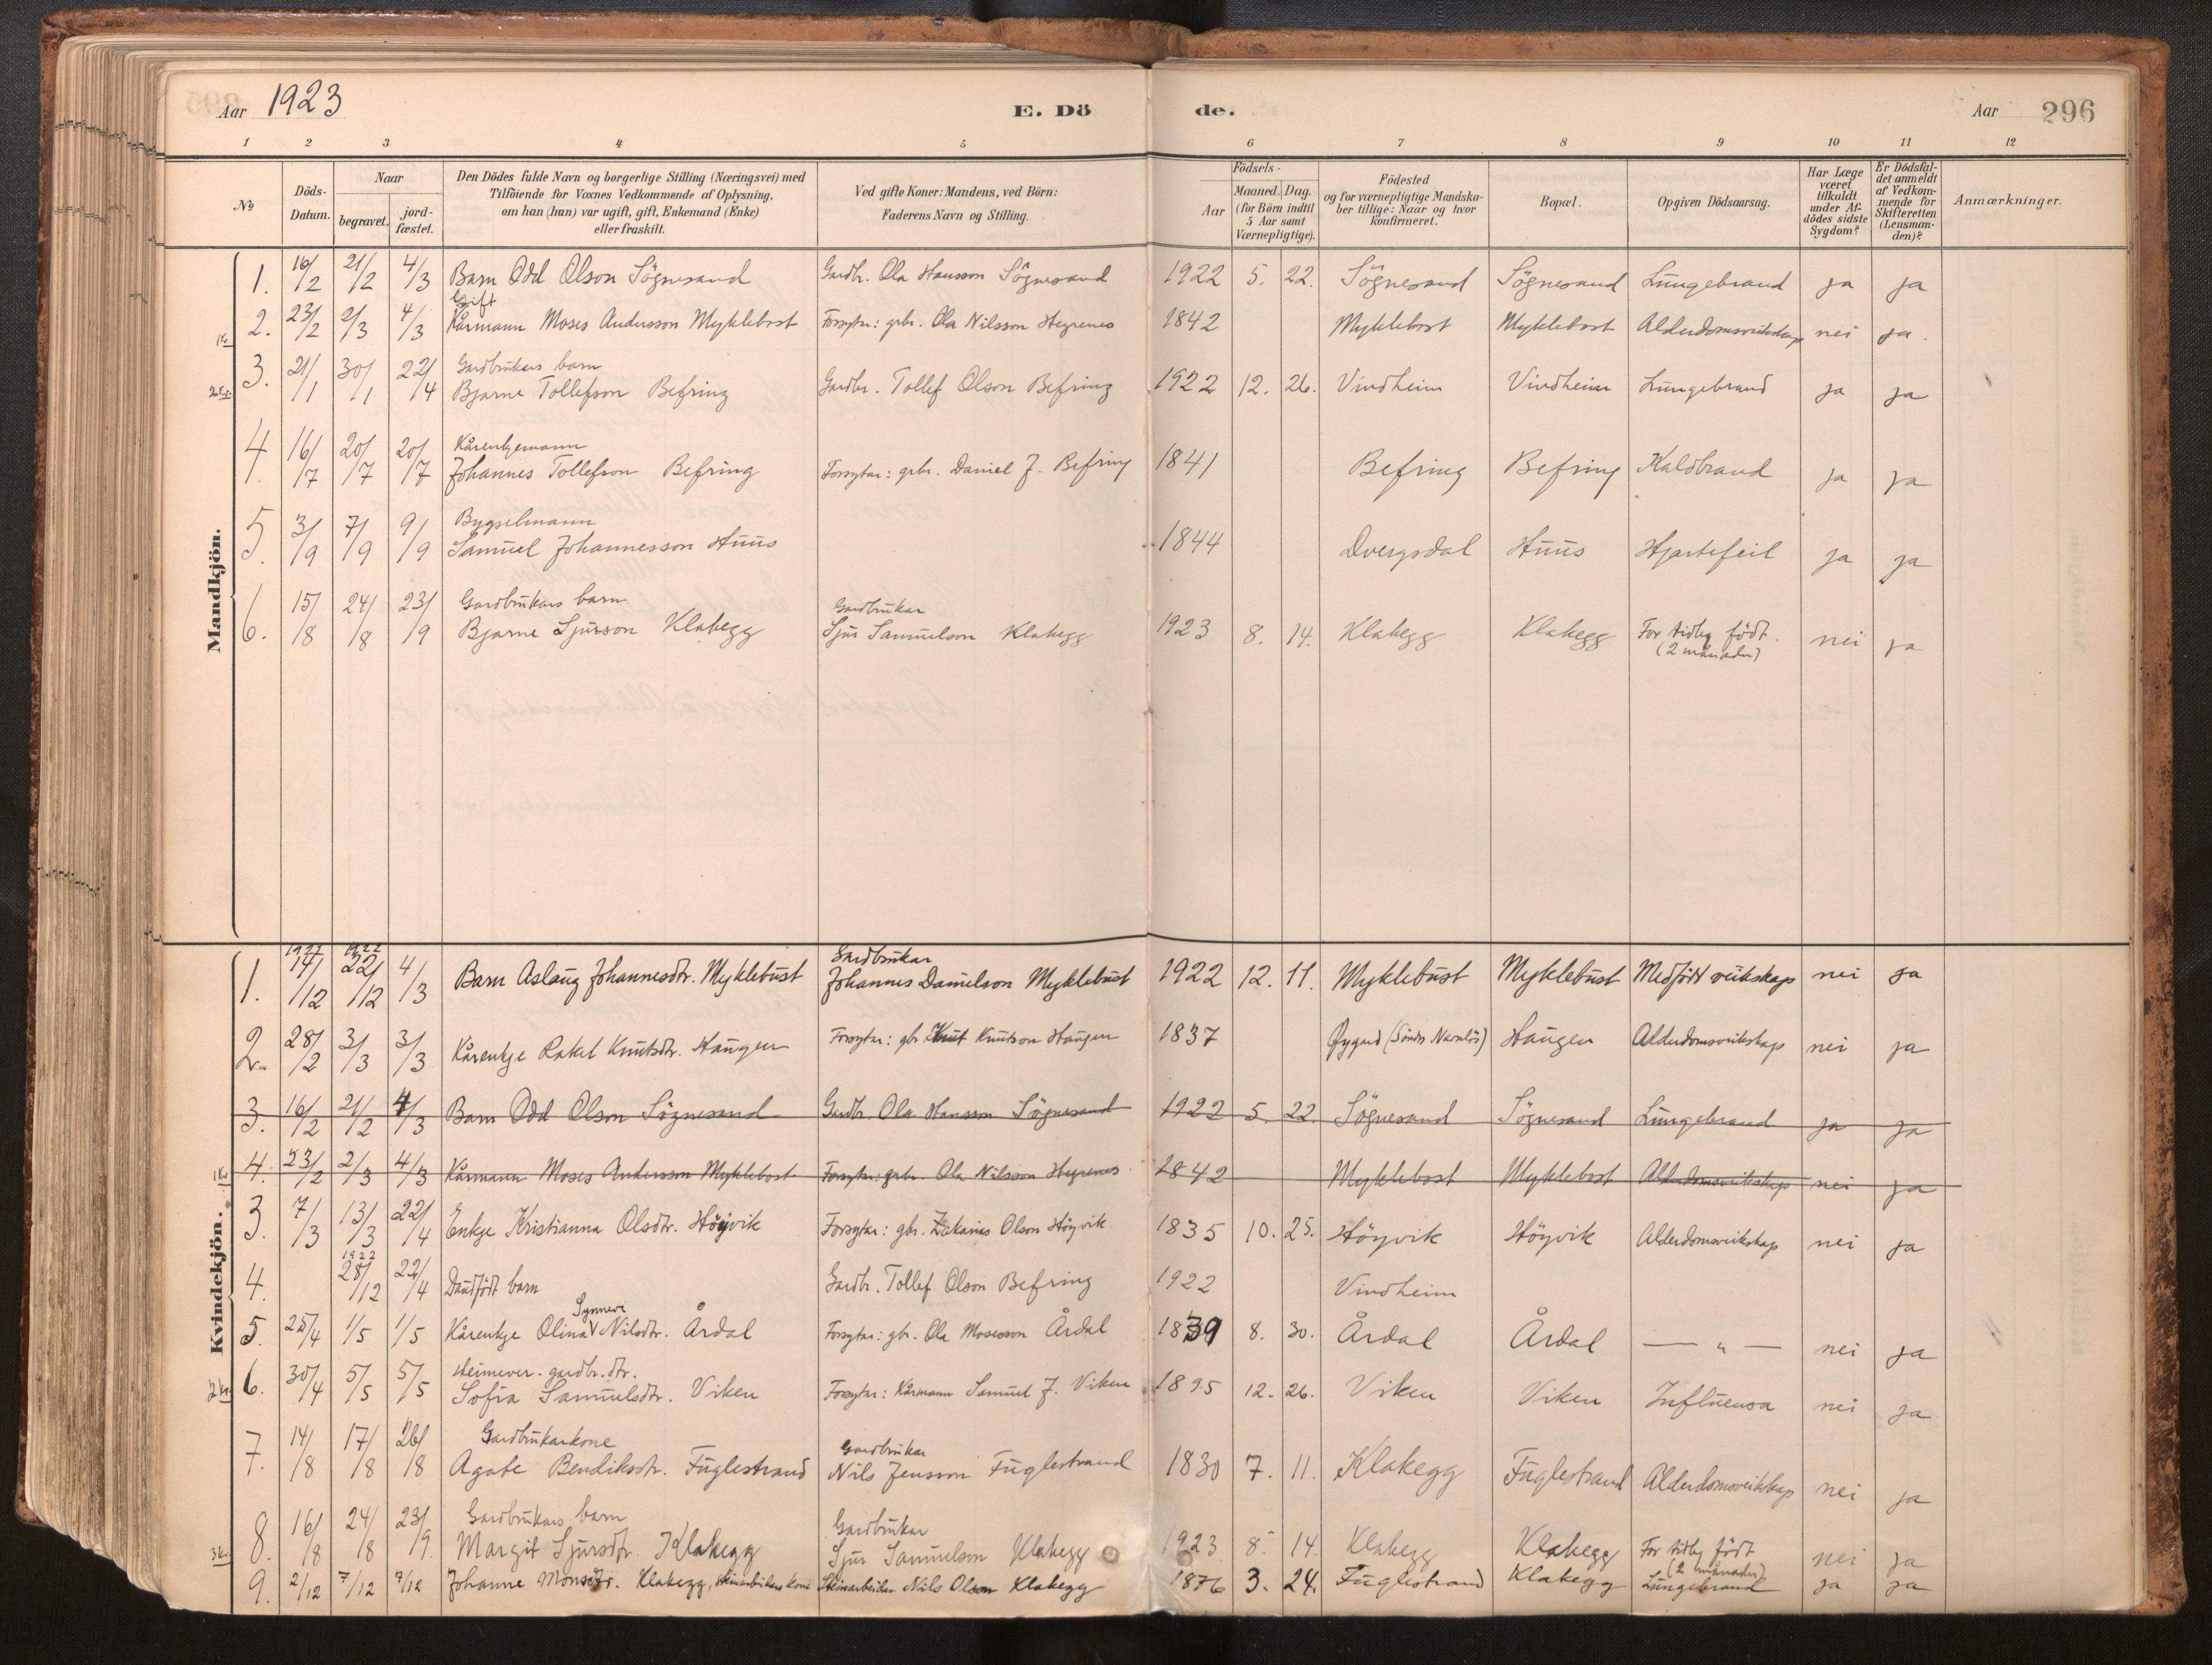 Aar 1923 E. Dö de. Aar 296
1 2 3 4 5 6 7 8 9 10 11 12
No
Döds-Datum.
Naar
begravet.
jord-fæstet.
Den Dödes fulde Navn og borgerlige Stilling (Næringsvei) med
Tilföiende for Voxnes Vedkommende af Oplysning,
om han (hun) var ugift, gift, Enkemand (Enke)
eller fraskilt.
Ved gifte Koner: Mandens, ved Börn:
Faderens Navn og Stilling.
Födsels-
Aar
Maaned. Dag.
(for Börn indtil
5 Aar samt
Værnepligtige).
Födested
og for værnepligtige Mandska-
ber tillige: Naar og hvor
konfirmeret.
Bopæl.
Opgiven Dödsaarsag.
Har Læge
været
tilkaldt
under Af-
dödes sidste
Sygdom?
Er Dödsfal-
det anmeldt
af Vedkom-
mende for
Skifteretten
(Lensman-
den)?
Anmærkninger.
Mandkjön.
1. 16/2 21/2 4/3 Barn Odd Olson Sögnesand Gardbr. Ola Hansson Sögnesand 1922 5. 22. Sögnesand Sögnesand Lungebrand ja ja
Gift
2. 23/2 2/3 4/3 Kårmann Moses Andersson Myklebost Forsytar: grbr. Ola Nilsson Hegrenes 1842 Myklebost Myklebost Alderdomsveikskap nei ja.
Gardbrukars barn
3. 21/1 30/1 22/4 Bjarne Tollefson Befring Gardbr. Tollef Olson Befring 1922 12. 26. Vindheim Vindheim Lungebrand ja ja
Kårenkjemann
4. 16/7 20/7 20/7 Johannes Tollefson Befring Forsytar: grbr. Daniel J. Befring 1841 Befring Befring Kaldbrand ja ja
Bygselmann
5. 3/9 7/9 9/9 Samuel Johannesson Huus 1844 Dvergsdal Huus Hjartefeil ja ja
Gardbrukars barn Gardbrukar
6. 15/8 24/8 23/9 Bjarne Sjurson Klakegg Sjur Samuelson Klakegg 1923 8. 14. Klakegg Klakegg For tidleg född. nei ja
(2 månader)
Kvindekjön.
1922 1922 Gardbrukar
1. 14/12 22/12 4/3 Barn Aslaug Johannesdtr. Myklebust Johannes Danielson Myklebust 1922 12. 11. Myklebust Myklebust Medfödt veikskap nei ja
2. 28/2 3/3 3/3 Kårenkje Rakel Knutsdtr. Haugen Forsytar: gbr. Knut Knutson Haugen 1837 Öygard (Sönds Navnlös) Haugen Alderdomsveikskap nei ja
3. 16/2 21/2 4/3 Barn Odd Olson Sögnesand Gardbr. Ola Hansson Sögnesand 1922 5. 22. Sögnesand Sögnesand Lungebrand ja ja
4. 23/2 2/3 4/3 Kårmann Moses Andersson Myklebost Forsytar: grbr. Ola Nilsson Hegrenes 1842 Myklebost Myklebost Alderdomsveikskap nei ja
3. 7/3 13/3 22/4 Enkje Kristianna Olsdtr. Höyvik Forsytar: gbr. Zakarias Olson Höyvik 1835 10. 25. Höyvik Höyvik Alderdomsveikskap nei ja
1922
4. 28/12 22/4 Daudfödt barn Gardbr. Tollef Olson Befring 1922 Vindheim
Synneve
5. 25/4 1/5 1/5 Kårenkje Olina Nilsdtr. Årdal Forsytar: gbr. Ola Mosesson Årdal 1839 8. 30. Årdal Årdal — „ — nei ja
Heimever. gardbr. dtr.
6. 30/4 5/5 5/5 Sofia Samuelsdtr. Viken Forsytar: Kårmann Samuel J. Viken 1895 12. 26. Viken Viken Influensa nei ja
Gardbrukarkone Gardbrukar
7. 14/8 17/8 26/8 Agate Bendiksdtr. Fuglestrand Nils Jensson Fuglestrand 1830 7. 11. Klakegg Fuglestrand Alderdomsveikskap nei ja
Gardbrukars barn Gardbrukar
8. 16/8 24/8 23/9. Margit Sjursdtr. Klakegg Sjur Samuelson Klakegg 1923 8. 14. Klakegg Klakegg For tidleg född nei ja
(2 månader)
9. 2/12 7/12 7/12 Johanne Monsdtr. Klakegg, Steinarbeiders kone Steinarbeider Nils Olson Klakegg 1876 3. 24. Fuglestrand Klakegg Lungebrand ja ja